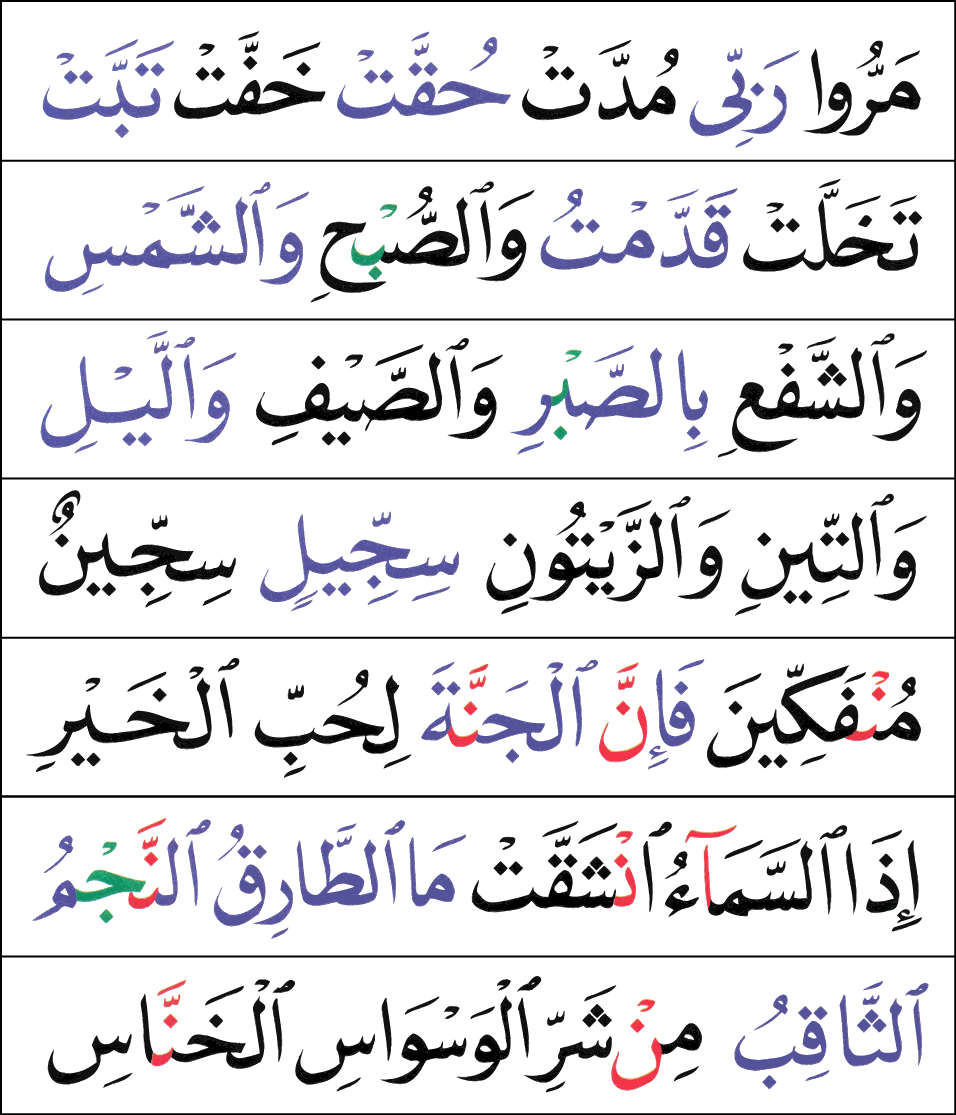 مَرُّوا رَبِّى مُدَّتْ حُقَّتْ خَفَّتْ تَبَّتْ
تَخَلَّتْ قَدَّمْتُ وَٱلصُّبْحِ وَٱلشَّمْسِ
وَٱلشَّفْعِ بِالصَّبْرِ وَٱلصَّيْفِ وَٱلَّيْلِ
وَٱلتِّينِ وَٱلزَّيْتُونِ سِجِّيلٍ سِجِّينٌ
مُنْفَكِّينَ فَإِنَّ ٱلْجَنَّةَ لِحُبِّ ٱلْخَيْرِ
إِذَا ٱلسَّمَآءُ ٱنْشَقَّتْ مَا ٱلطَّارِقُ ٱلنَّجْمُ
ٱلثَّاقِبُ مِنْ شَرِّ ٱلْوَسْوَاسِ ٱلْخَنَّاسِ